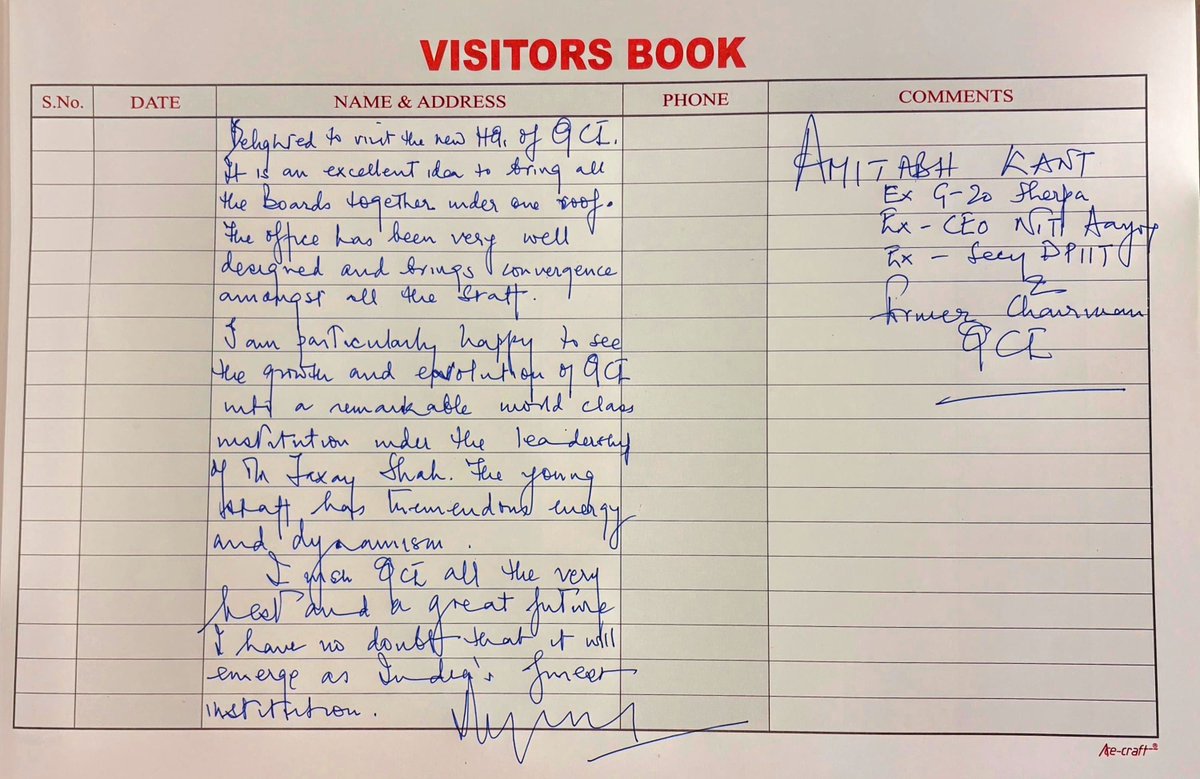 VISITORS BOOK
S.No. DATE NAME & ADDRESS PHONE COMMENTS
Delighted to visit the new HQ. of QCI.
It is an excellent idea to bring all
the Boards together under one roof.
The office has been very well
designed and brings convergence
amongst all the staff.
I am particularly happy to see
the growth and evolution of QCI
into a remarkable world class
institution under the leadership
of Jaxay Shah. The young
staff has tremendous energy
and dynamism.
I wish QCI all the very
best and a great future
I have no doubt that it will
emerge as India's finest
institution.
AMITABH KANT
Ex G-20 Sherpa
Ex - CEO NITI Aayog
Ex - Secy DPIIT
&
Former Chairman
QCI
Ace-craft®